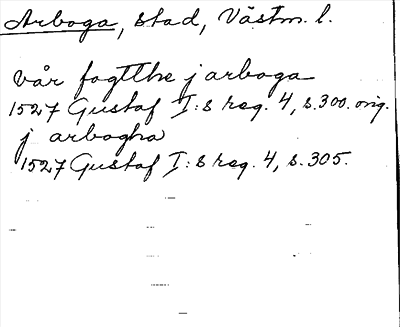 Arboga, stad, Västm. l.
vår fogtthe j arboga
1527 Gustaf I:s reg. 4, s. 300. orig.
j arbogha
1527 Gustaf I:s reg. 4, s. 305.